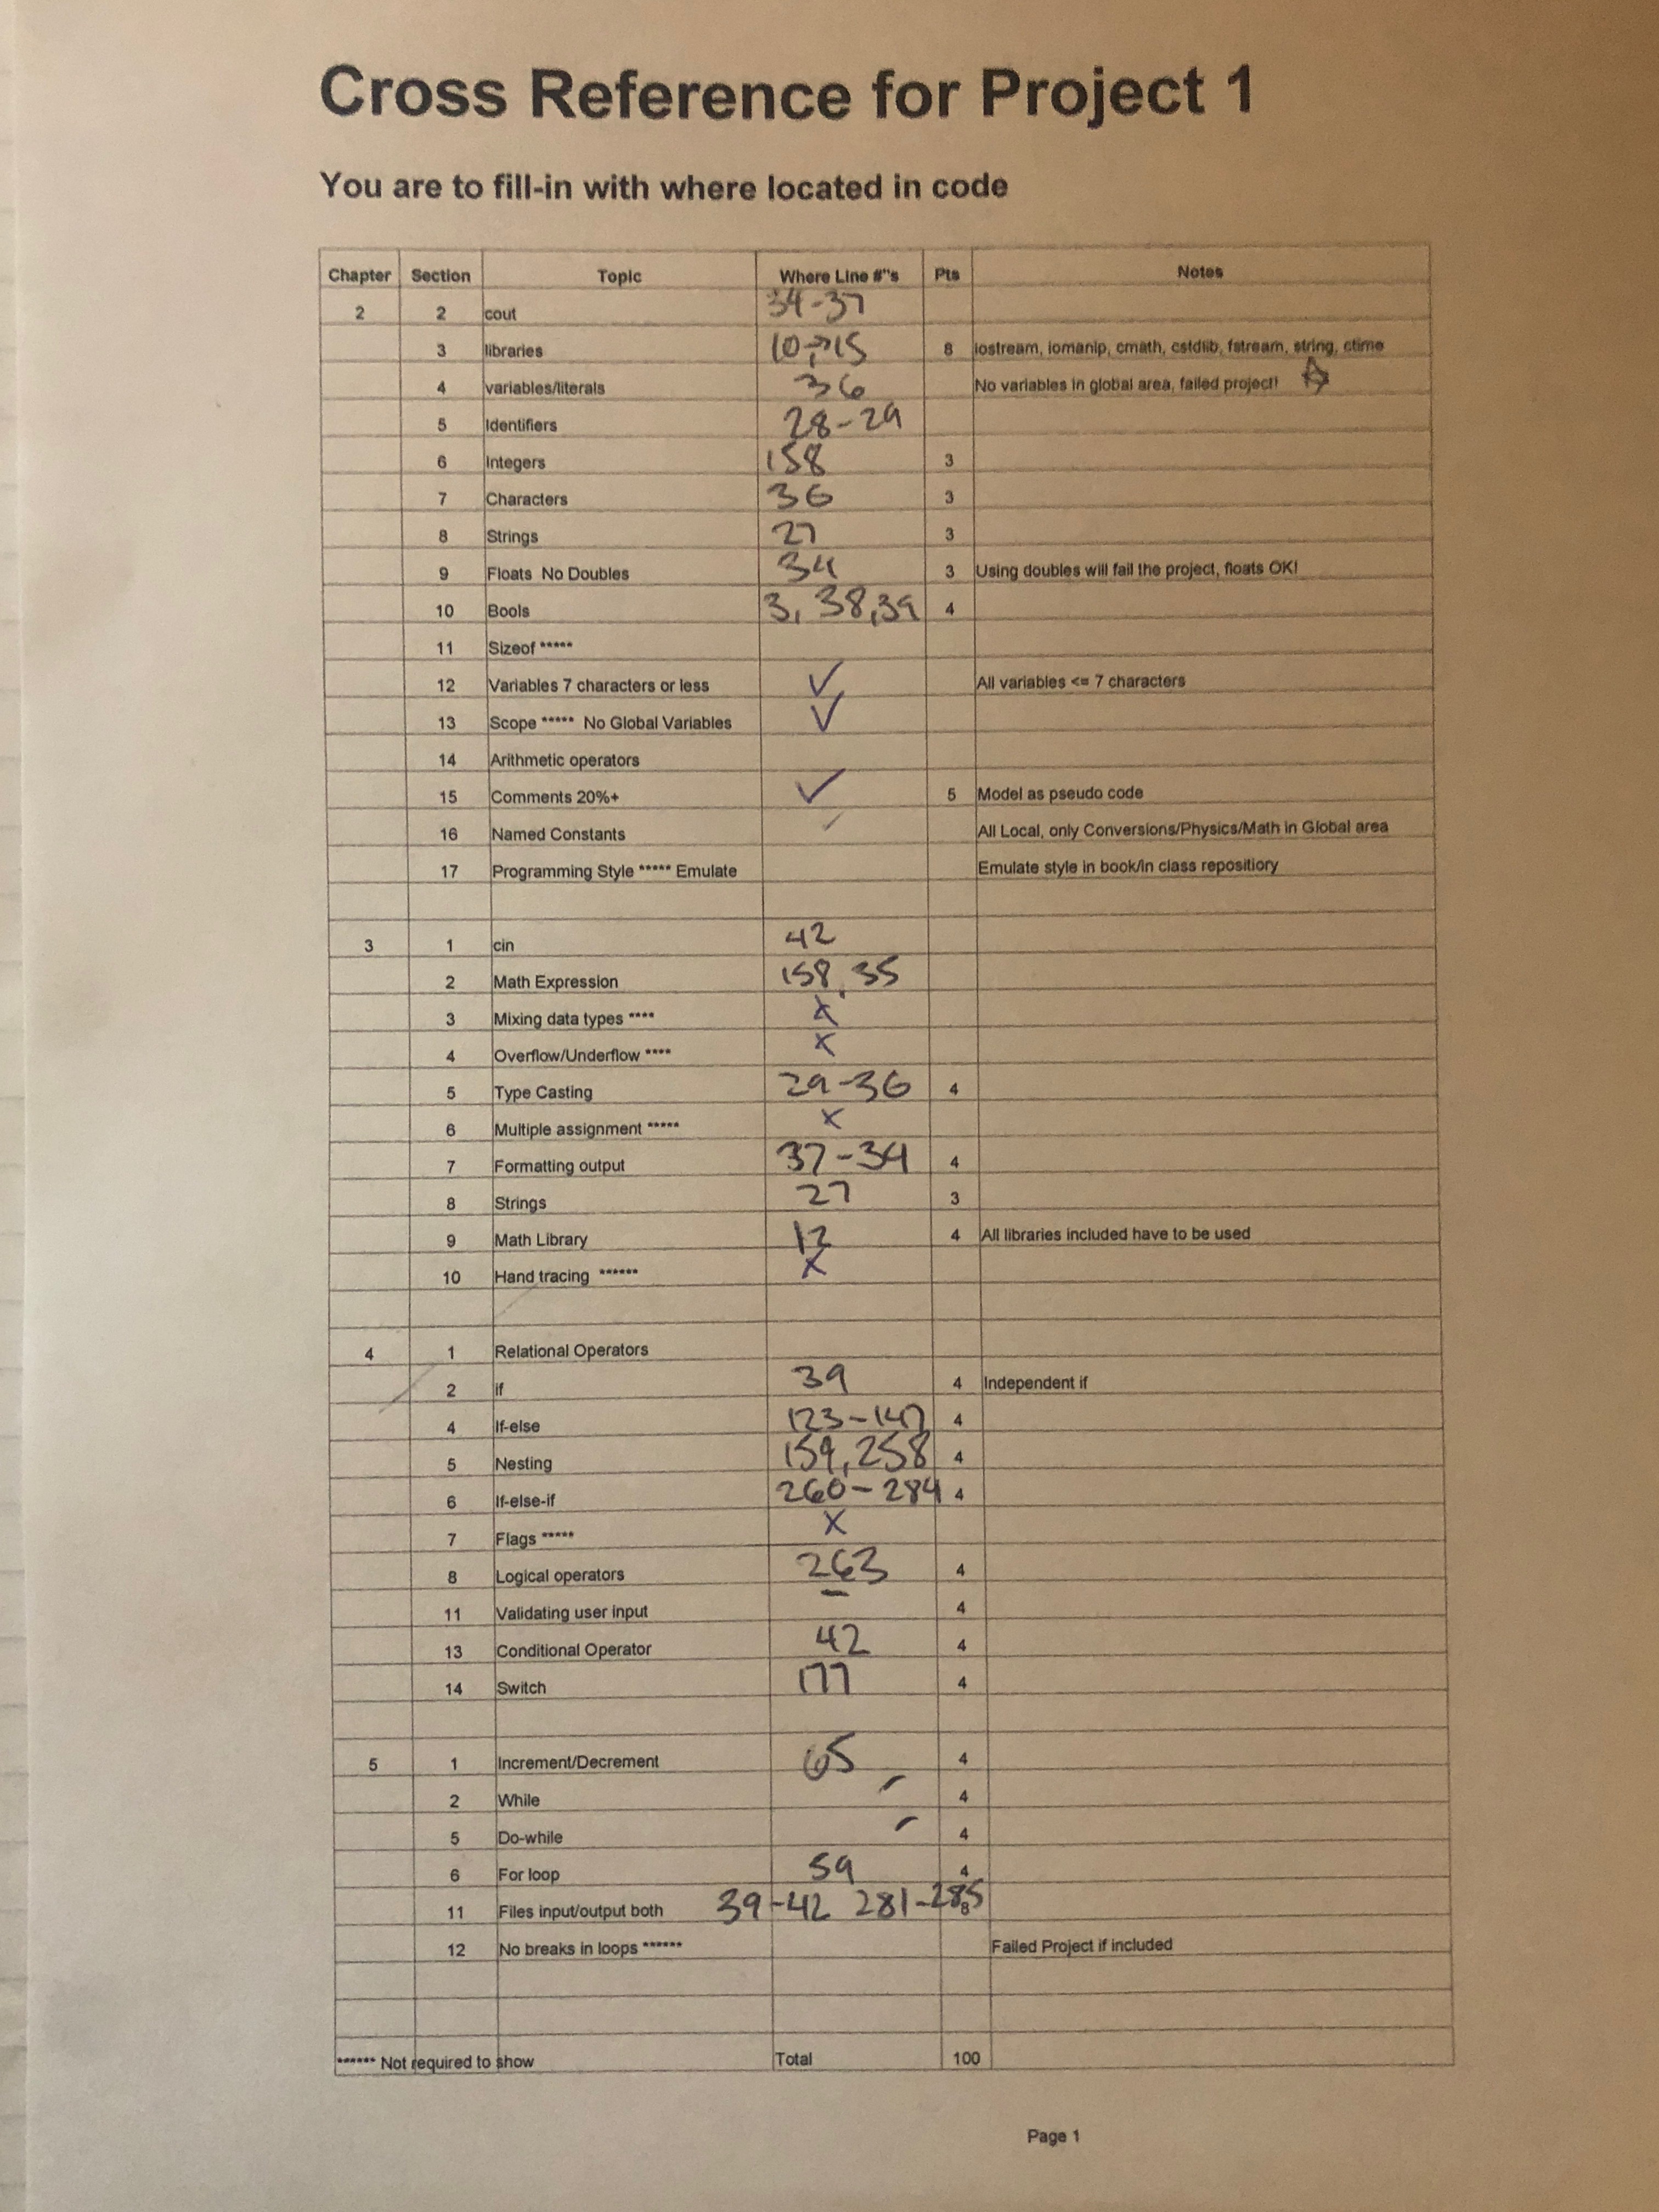 Cross Reference for Project 1
You are to fill-in with where located in code
Chapter Section Topic Where Line #"s Pts Notes
2 2 cout 34-37
3 libraries 10->15 8 iostream, iomanip, cmath, cstdlib, fstream, string, ctime
4 variables/literals 36 No variables in global area, failed project!
5 Identifiers 28-29
6 Integers 158 3
7 Characters 36 3
8 Strings 27 3
9 Floats No Doubles 34 3 Using doubles will fail the project, floats OK!
10 Bools 3, 38,39 4
11 Sizeof *****
12 Variables 7 characters or less ✓ All variables <= 7 characters
13 Scope ***** No Global Variables ✓
14 Arithmetic operators
15 Comments 20%+ ✓ 5 Model as pseudo code
16 Named Constants ✓ All Local, only Conversions/Physics/Math in Global area
17 Programming Style ***** Emulate Emulate style in book/in class repositiory
3 1 cin 42
2 Math Expression 158, 35
3 Mixing data types **** X
4 Overflow/Underflow **** X
5 Type Casting 29-36 4
6 Multiple assignment ***** X
7 Formatting output 37-39 4
8 Strings 27 3
9 Math Library 12 4 All libraries included have to be used
10 Hand tracing ****** X
4 1 Relational Operators
2 if 39 4 Independent if
4 If-else 123-147 4
5 Nesting 159, 258 4
6 If-else-if 260-284 4
7 Flags ***** X
8 Logical operators 263 4
11 Validating user input - 4
13 Conditional Operator 42 4
14 Switch 177 4
5 1 Increment/Decrement 65 4
2 While - 4
5 Do-while - 4
6 For loop 59 4
11 Files input/output both 39-42 281-285 8
12 No breaks in loops ****** Failed Project if included
****** Not required to show Total 100
Page 1